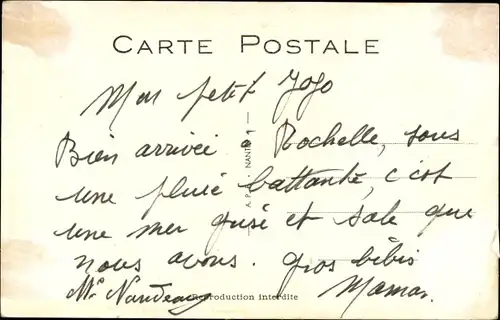 CARTE POSTALE
Mon petit Jojo
Bien arrivée à Rochelle, sous
une pluie battante, c'est
une mer grise et sale que
nous avons. Gros bébis
Maman.
Reproduction interdite